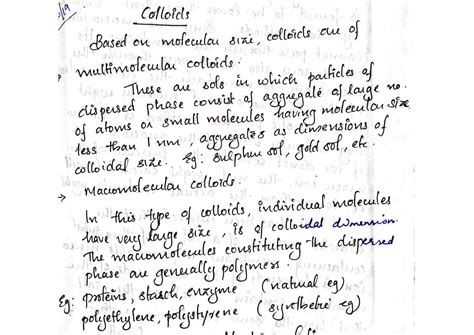 Colloids
Based on molecular size, colloids are of
→ multimolecular colloids:
These are sols in which particles of
dispersed phase consist of aggregate of large no.
of atoms or small molecules having molecular size
less than 1 nm, aggregates as dimensions of
colloidal size. Eg: sulphur sol, gold sol, etc.
→ Macromolecular colloids:
In this type of colloids, individual molecules
have very large size, is of colloidal dimension.
The macromolecules constituting the dispersed
phase are generally polymers.
Eg: Proteins, starch, enzyme (natural eg)
polyethylene, polystyrene (synthetic eg)